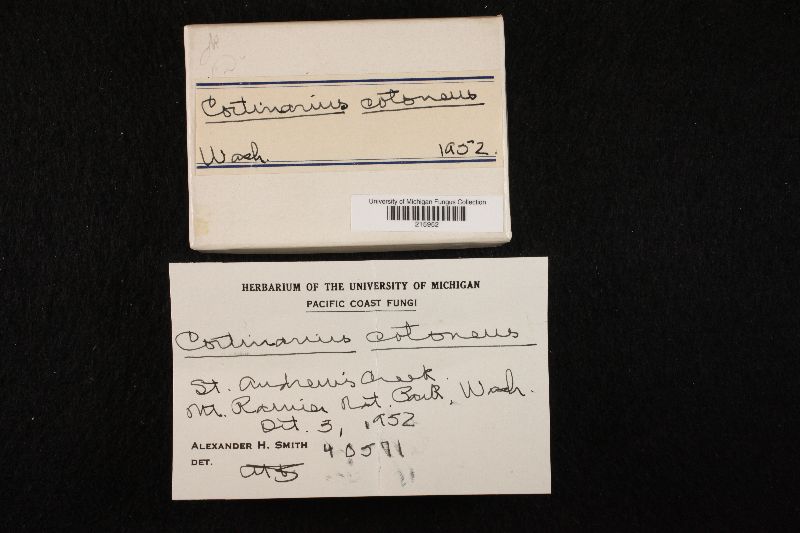 Cortinarius cotoneus
Wash. 1952.
University of Michigan Fungus Collection
215952
HERBARIUM OF THE UNIVERSITY OF MICHIGAN
PACIFIC COAST FUNGI
Cortinarius cotoneus
St. Andrew's Creek.
Mt. Rainier Nat. Park, Wash.
Oct. 3, 1952
ALEXANDER H. SMITH 40571
DET. AHS